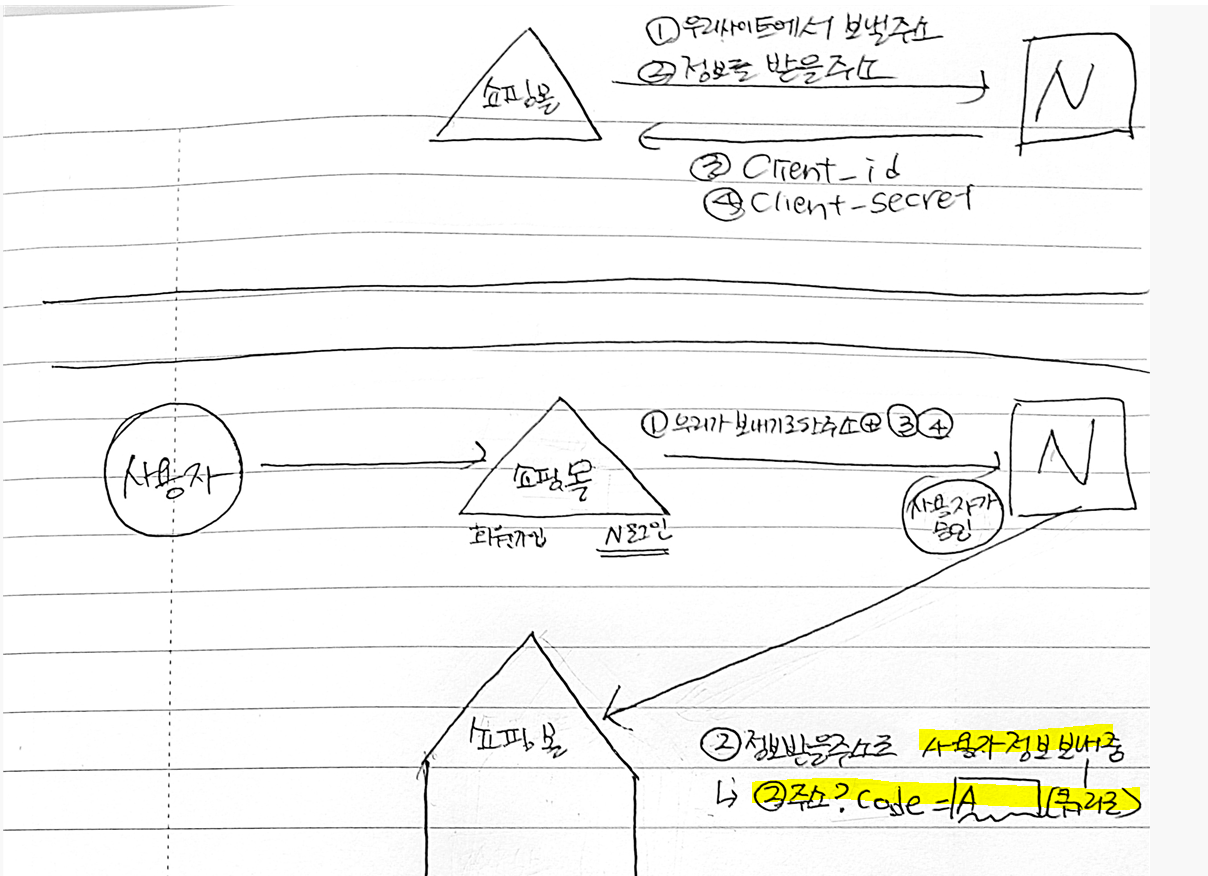 ① 우리사이트에서 보낼주소
② 정보를 받을주소
쇼핑몰
N
③ Client_id
④ Client_secret
사용자
쇼핑몰
① 우리가 보내기로한주소 ⊕ ③ ④
N
회원가입
N로그인
사용자가
승인
쇼핑몰
② 정보받을주소로 사용자정보보내줌
↳ ②주소? Code = A (쿼리로)